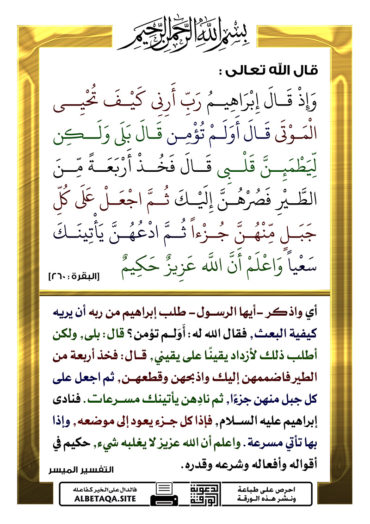 بِسْمِ اللَّهِ الرَّحْمَنِ الرَّحِيمِ
قال الله تعالى :
وَإِذْ قَـالَ إِبْرَاهِيـمُ رَبِّ أَرِنِي كَيْـفَ تُحْيِــي
الْمَـوْتَى قَـالَ أَوَلَـمْ تُؤْمِـن قَـالَ بَلَى وَلَــكِن
لِّيَطْمَئِـنَّ قَلْـبِي قَـالَ فَخُـذْ أَرْبَعَـةً مِّـنَ
الطَّـيْرِ فَصُرْهُـنَّ إِلَيْـكَ ثُـمَّ اجْعَـلْ عَلَى كُلِّ
جَبَـلٍ مِّنْهُـنَّ جُـزْءاً ثُـمَّ ادْعُهُـنَّ يَأْتِينَـكَ
سَعْياً وَاعْلَمْ أَنَّ اللَّه عَزِيزٌ حَكِيمٌ
[البقرة : ٢٦٠]
أي واذكـر -أيها الرسـول- طلب إبراهيم من ربه أن يريه
كيفية البعث, فقال الله له: أَوَلـم تؤمن؟ قال: بلى, ولكن
أطلب ذلك لأزداد يقينًا على يقيني, قـال: فخذ أربعة من
الطير فاضممهن إليك واذبحهن وقطعهـن, ثم اجعل على
كل جبل منهن جزءًا, ثم نادِهن يأتينك مسـرعات. فنادى
إبراهيم عليه السـلام, فإذا كل جـزء يعود إلى موضعه, وإذا
بها تأتي مسرعة. واعلم أن الله عزيز لا يغلبه شيء, حكيم في
أقواله وأفعاله وشرعه وقدره.
التفسير الميسر
احرص على طباعة
ونشر هذه الورقة
الدعوية
الورقة
فالدال على الخير كفاعله
ALBETAQA.SITE